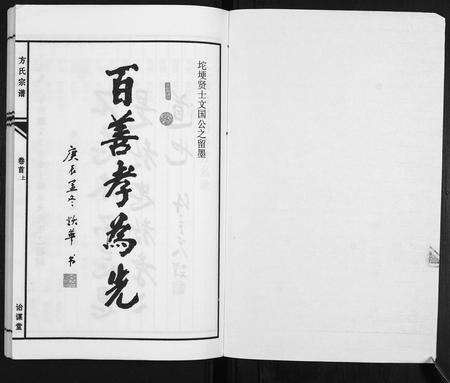 坨埂贤士文国公之留墨
百善孝為先
庚辰孟冬 书
方氏宗谱
卷首上
诒谋堂